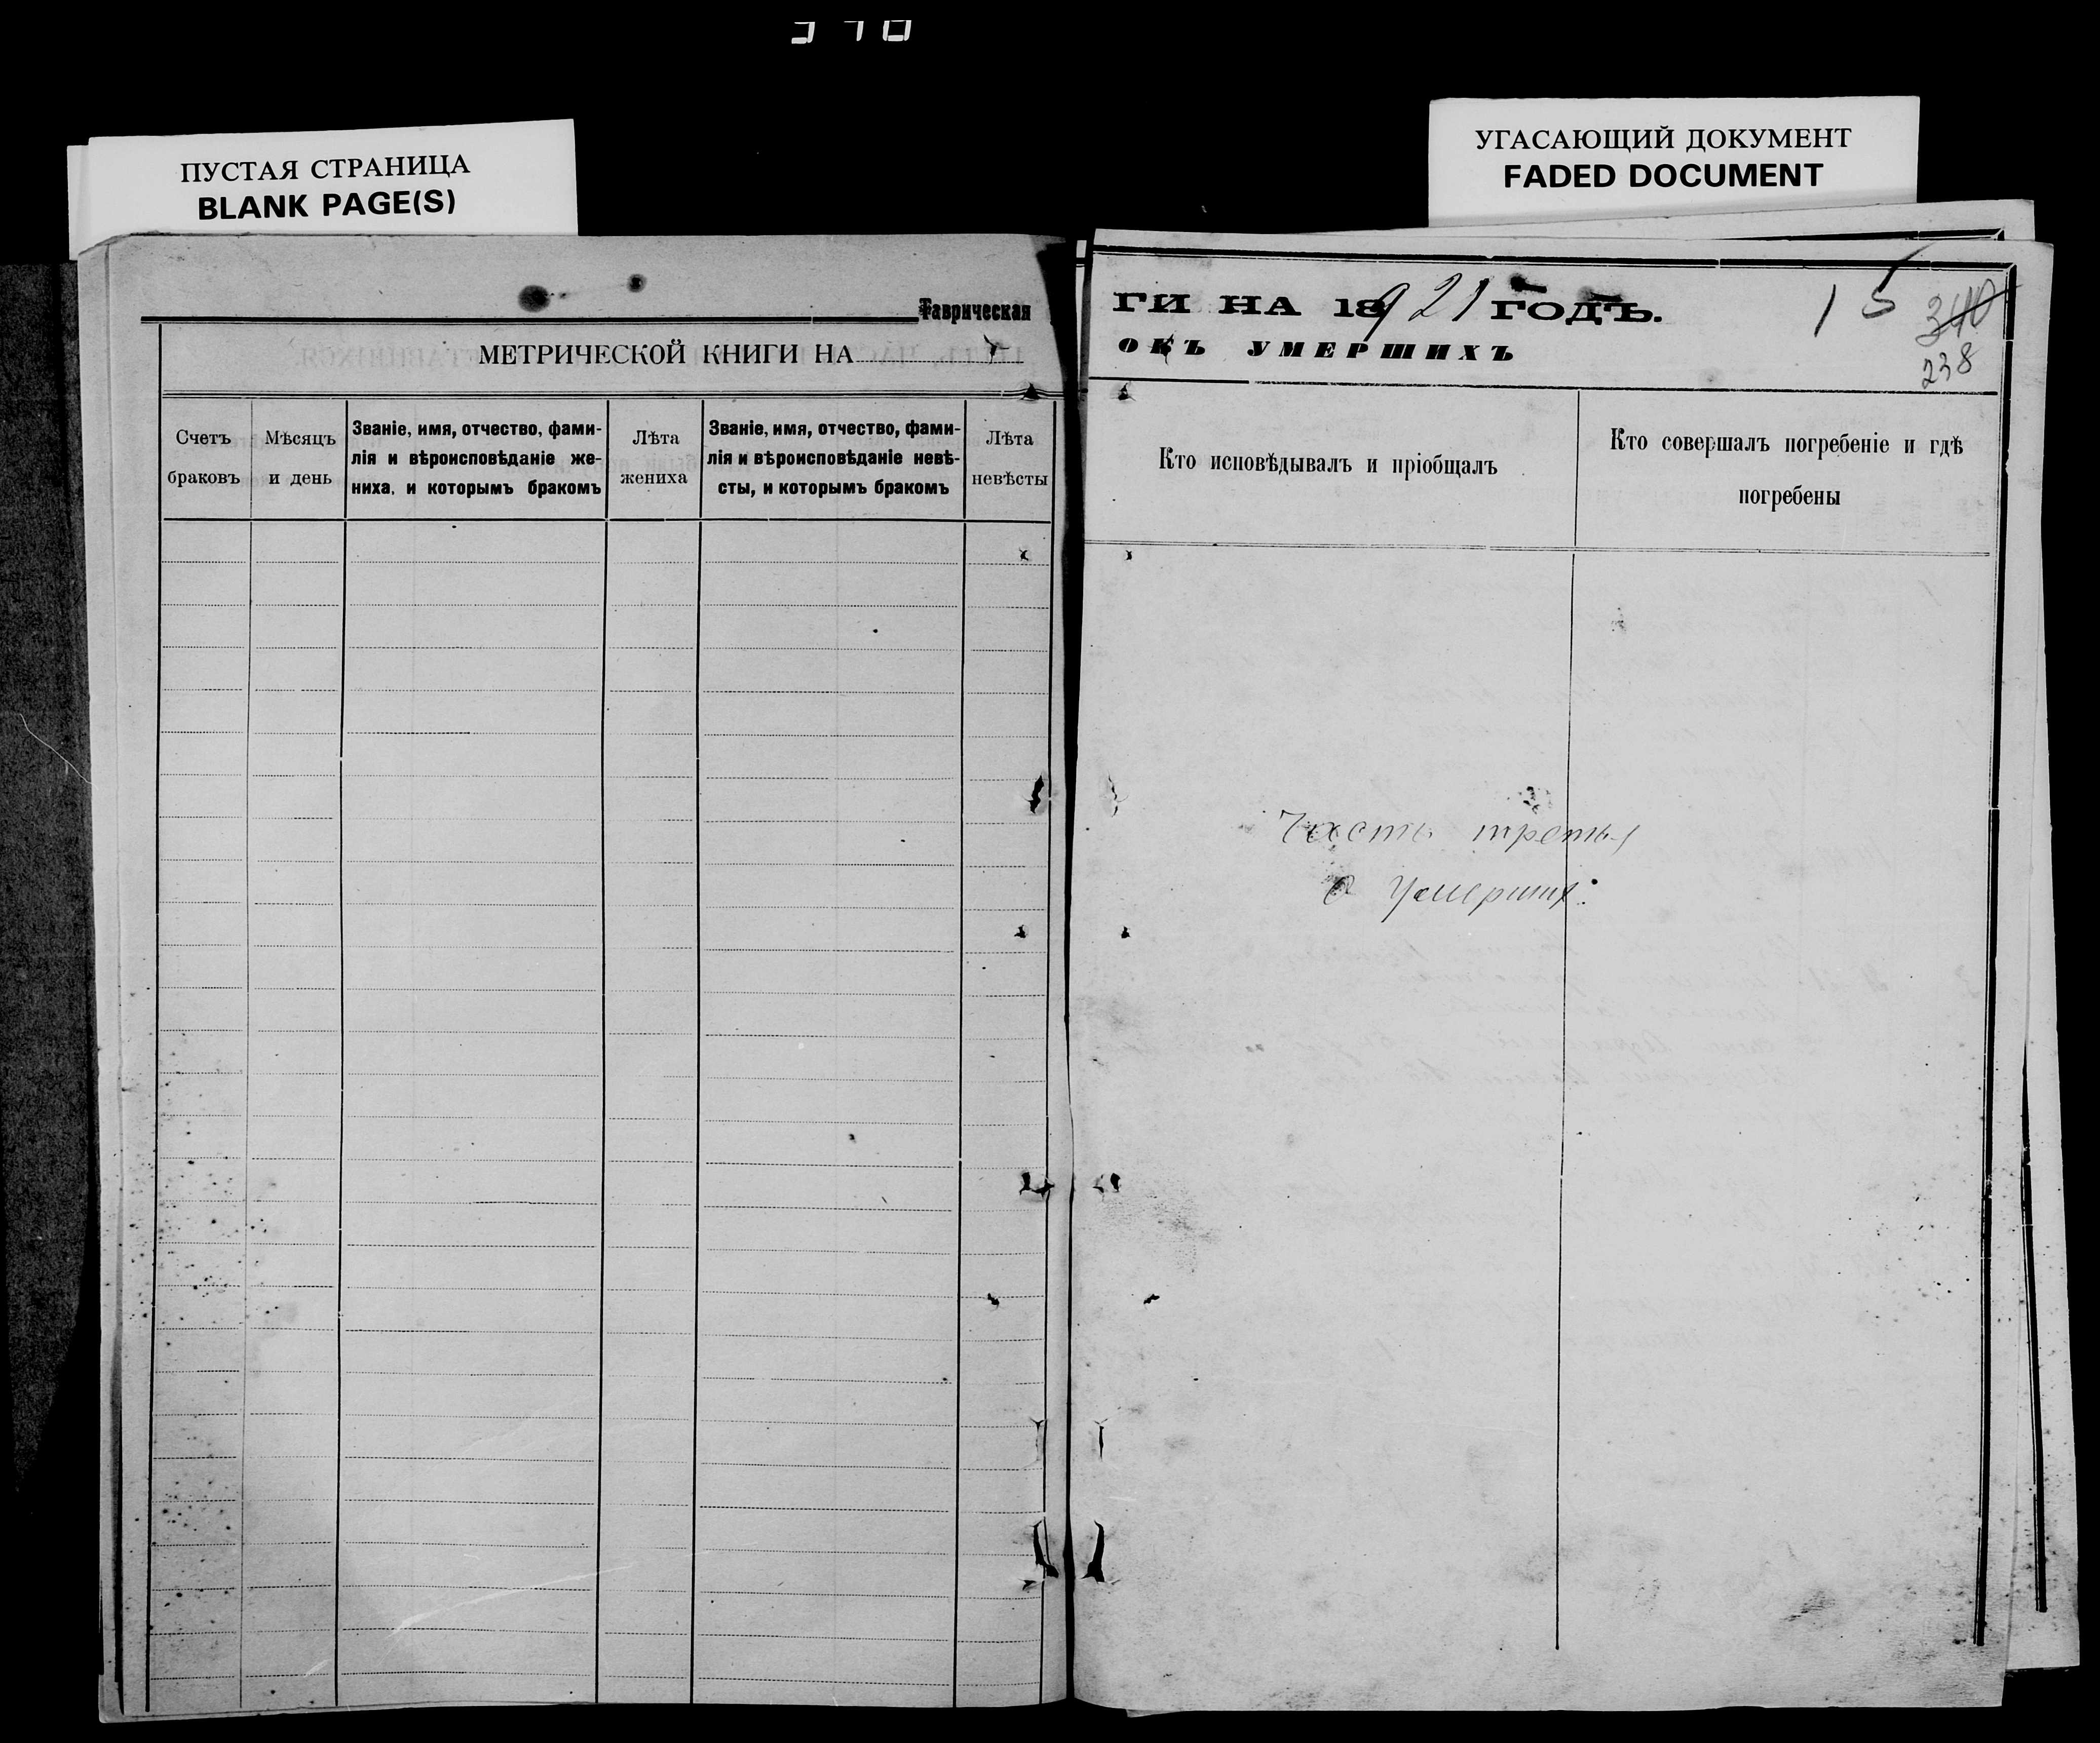 ПУСТАЯ СТРАНИЦА
BLANK PAGE(S)
УГАСАЮЩИЙ ДОКУМЕНТ
FADED DOCUMENT
Таврическая
МЕТРИЧЕСКОЙ КНИГИ НА
Счетъ браковъ
Мѣсяцъ и день
Званіе, имя, отчество, фами-
лія и вѣроисповѣданіе же-
ниха, и которымъ бракомъ
Лѣта жениха
Званіе, имя, отчество, фами-
лія и вѣроисповѣданіе невѣ-
сты, и которымъ бракомъ
Лѣта невѣсты
ГИ НА 18921 ГОДЪ.
ОКЪ УМЕРШИХЪ
15
340
238
Кто исповѣдывалъ и пріобщалъ
Кто совершалъ погребеніе и гдѣ
погребены
Часть третья
О Умерших.